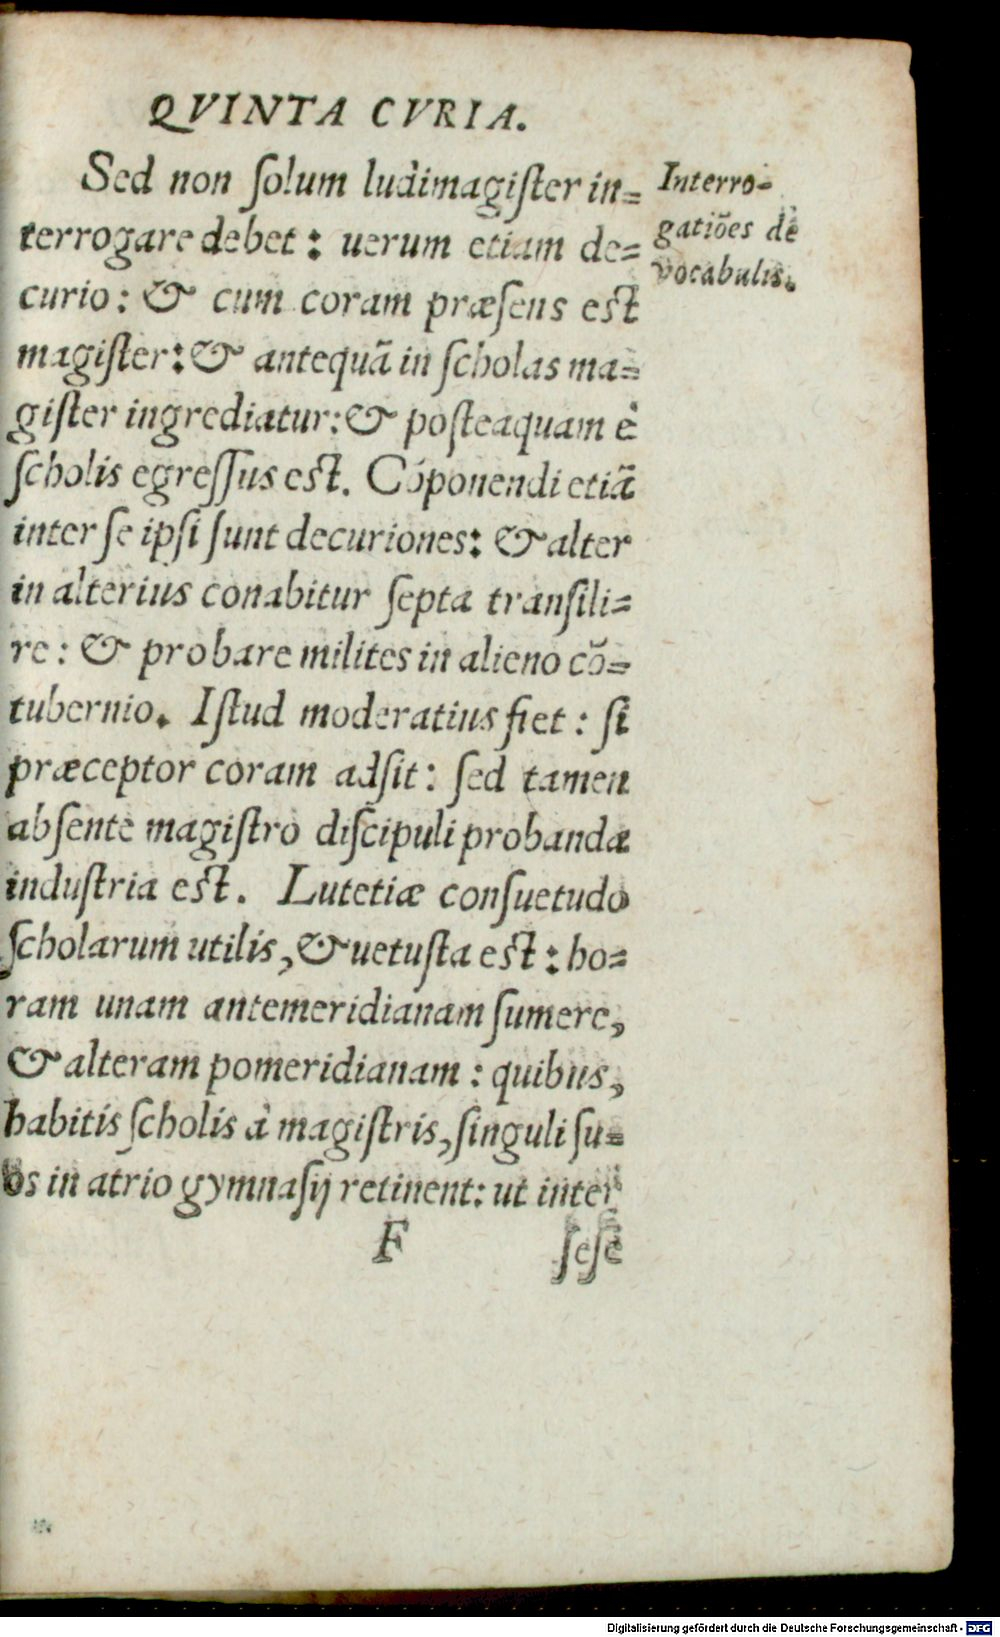 QVINTA CVRIA.
Sed non ſolum ludimagiſter in=
terrogare debet: uerum etiam de=
curio: & cum coram præſens eſt
magiſter: & antequã in ſcholas ma=
giſter ingrediatur: & poſteaquam è
ſcholis egreſſus eſt. Cõponendi etiã
inter ſe ipſi ſunt decuriones: & alter
in alterius conabitur ſepta tranſili=
re: & probare milites in alieno cõ=
tubernio. Iſtud moderatius fiet: ſi
præceptor coram adſit: ſed tamen
abſente magiſtro diſcipuli probanda
induſtria eſt. Lutetiæ conſuetudo
ſcholarum utilis, & uetuſta eſt: ho=
ram unam antemeridianam ſumere,
& alteram pomeridianam: quibus,
habitis ſcholis à magiſtris, ſinguli ſu=
os in atrio gymnaſij retinent: ut inter
F ſeſe
Interro=
gatiões de
vocabulis.
Digitalisierung gefördert durch die Deutsche Forschungsgemeinschaft - DFG